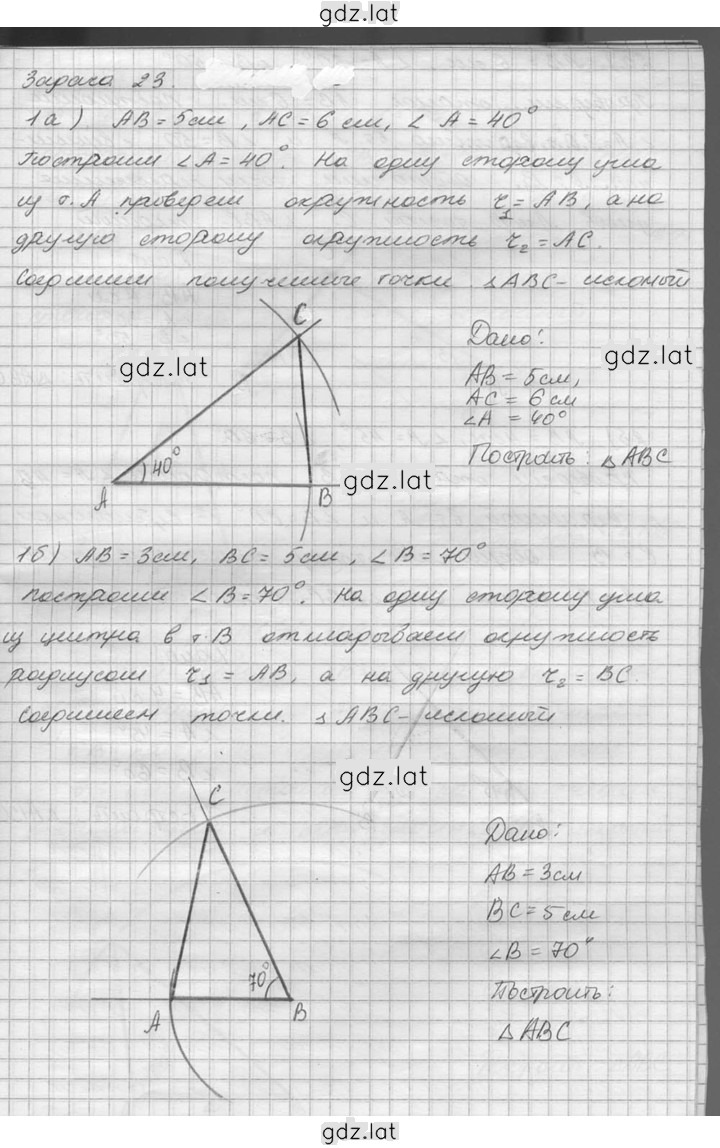 gdz.lat
Задача 23.
1а) AB = 5 см, AC = 6 см, ∠ A = 40°
Построим ∠A = 40°. На одну сторону угла
из т. A проведем окружность r₁ = AB, а на
другую сторону окружность r₂ = AC.
Соединим полученные точки. △ABC - искомый
C
Дано:
gdz.lat
gdz.lat
AB = 5 см,
AC = 6 см
∠A = 40°
40°
Построить: △ABC
A
B
gdz.lat
1б) AB = 3 см, BC = 5 см, ∠B = 70°
построим ∠B = 70°. На одну сторону угла
из центра в т. B откладываем окружность
радиусом r₁ = AB, а на другую r₂ = BC.
Соединяем точки. △ABC - искомый.
gdz.lat
C
Дано:
AB = 3 см
BC = 5 см
∠B = 70°
70°
Построить:
A
B
△ABC
gdz.lat